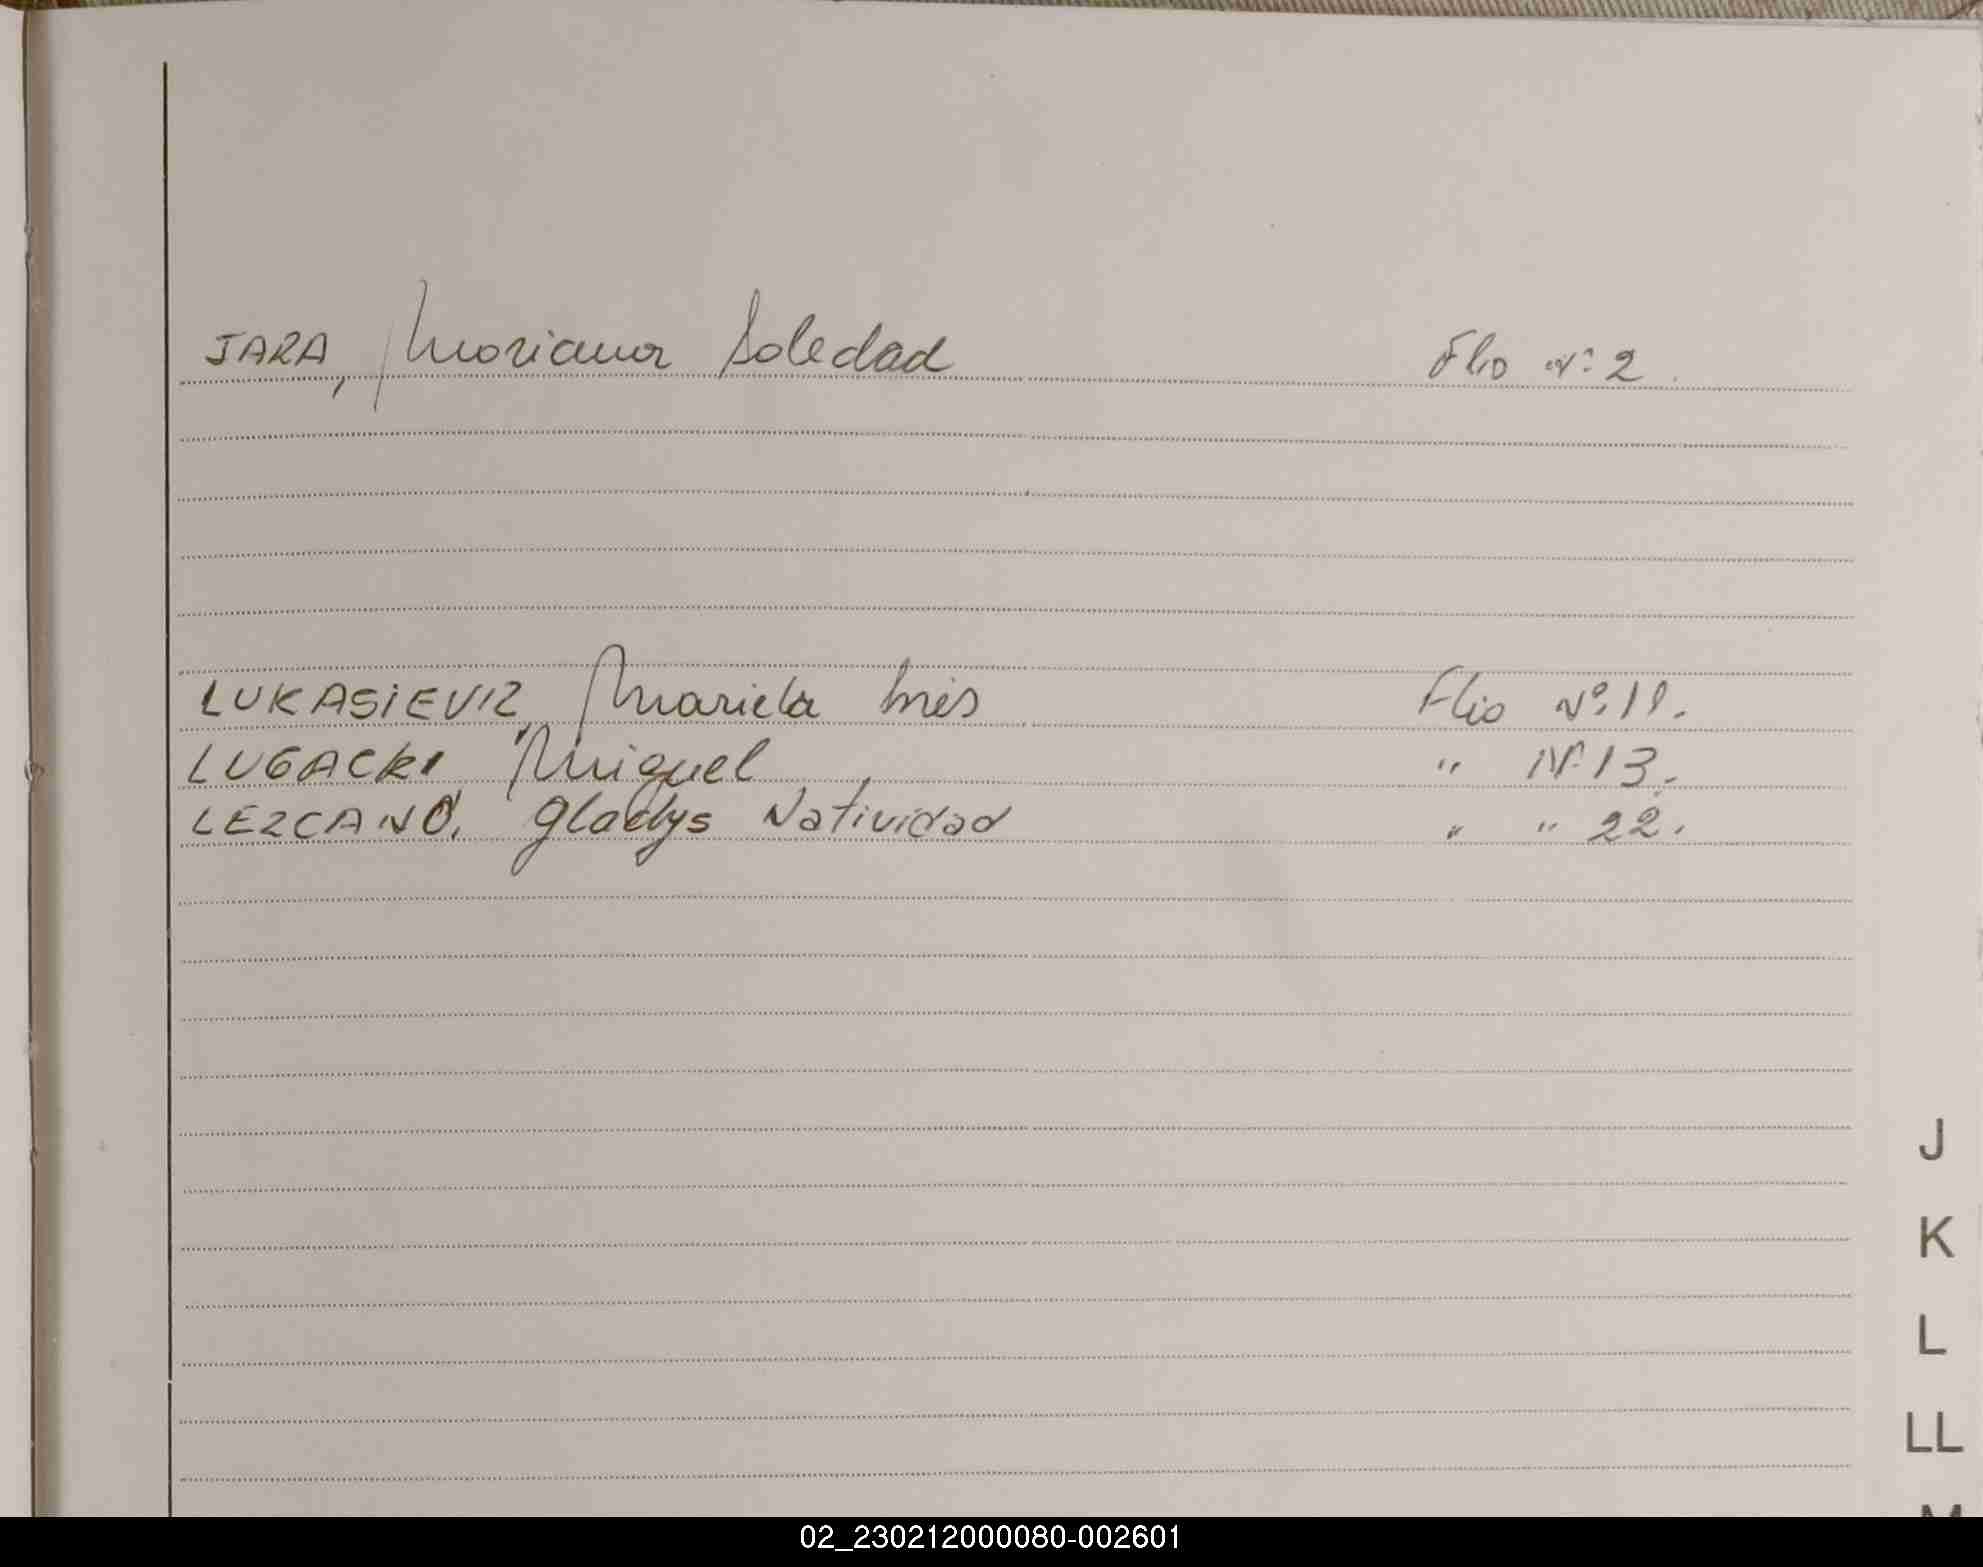 JARA, Mariana Soledad Flio Nº 2.
LUKASIEVIZ, Mariela Inés Flio Nº 11.
LUGACKI Miguel " Nº 13.
LEZCANO, Gladys Natividad " " 22.
J
K
L
LL
M
02_230212000080-002601